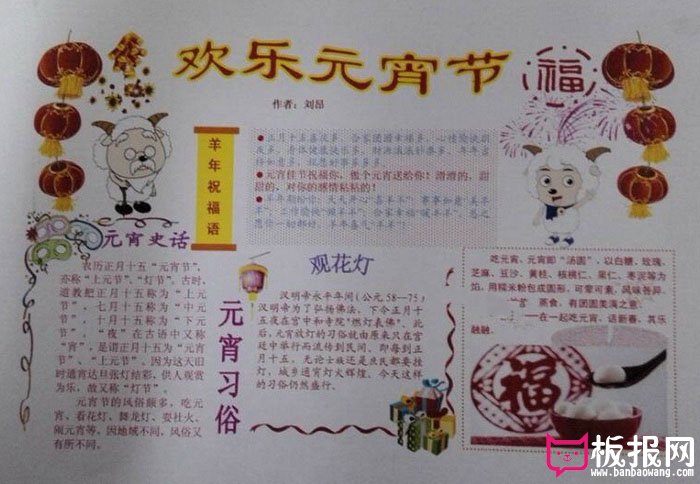 欢乐元宵节
福
作者：刘昂
羊年祝福语
●元宵佳节祝福你，做个元宵送给你！滑滑的，甜
甜的，对你的感情粘粘的！
元宵史话
农历正月十五“元宵节”，
亦称“上元节”、“灯节”。古时，
道教把正月十五称为“上元
节”，七月十五称为“中元
节”，十月十五称为“下元
节”，“夜”在古语中又称
“宵”，是谓正月十五为“元宵
节”、“上元节”。因为这天旧
时通宵达旦张灯结彩，供人观赏
为乐，故又称“灯节”。
元宵节的风俗颇多，吃元
宵、看花灯、舞龙灯、耍社火、
闹元宵等。因地域不同，风俗又
有所不同。
元宵习俗
观花灯
汉明帝永平年间（公元58—75）
汉明帝为了弘扬佛法，下令正月十
五夜在宫中和寺院“燃灯表佛”。此
后，元宵放灯的习俗就由原来只在宫
廷中举行而流传到民间。即每到正
月十五，无论士族还是庶民都要挂
灯，城乡通宵灯火辉煌。今天这样
的习俗仍然盛行。
吃元宵，元宵即“汤圆”，以白糖、玫瑰、
芝麻、豆沙、黄桂、核桃仁、果仁、枣泥等为
馅，用糯米粉包成圆形，可荤可素，风味各异。
蒸食，有团圆美满之意。
在一起吃元宵，话新春，其乐
融融。
福
板报网
www.banbaowang.com